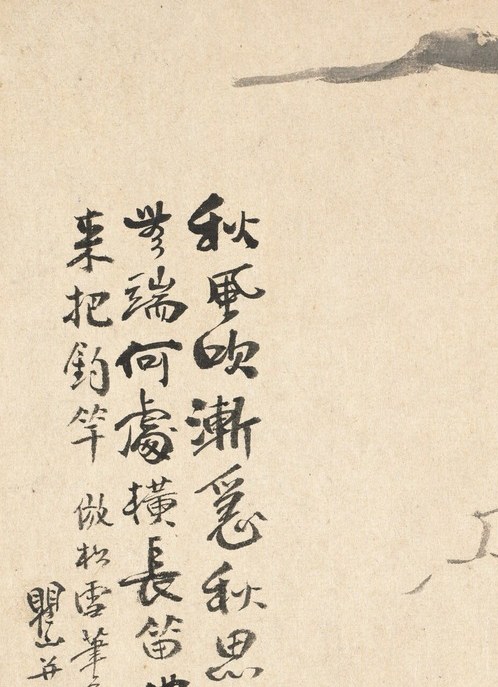 秋風吹漸急秋思
無端何處橫長笛
来把釣竿 倣松雪筆
瞿山并